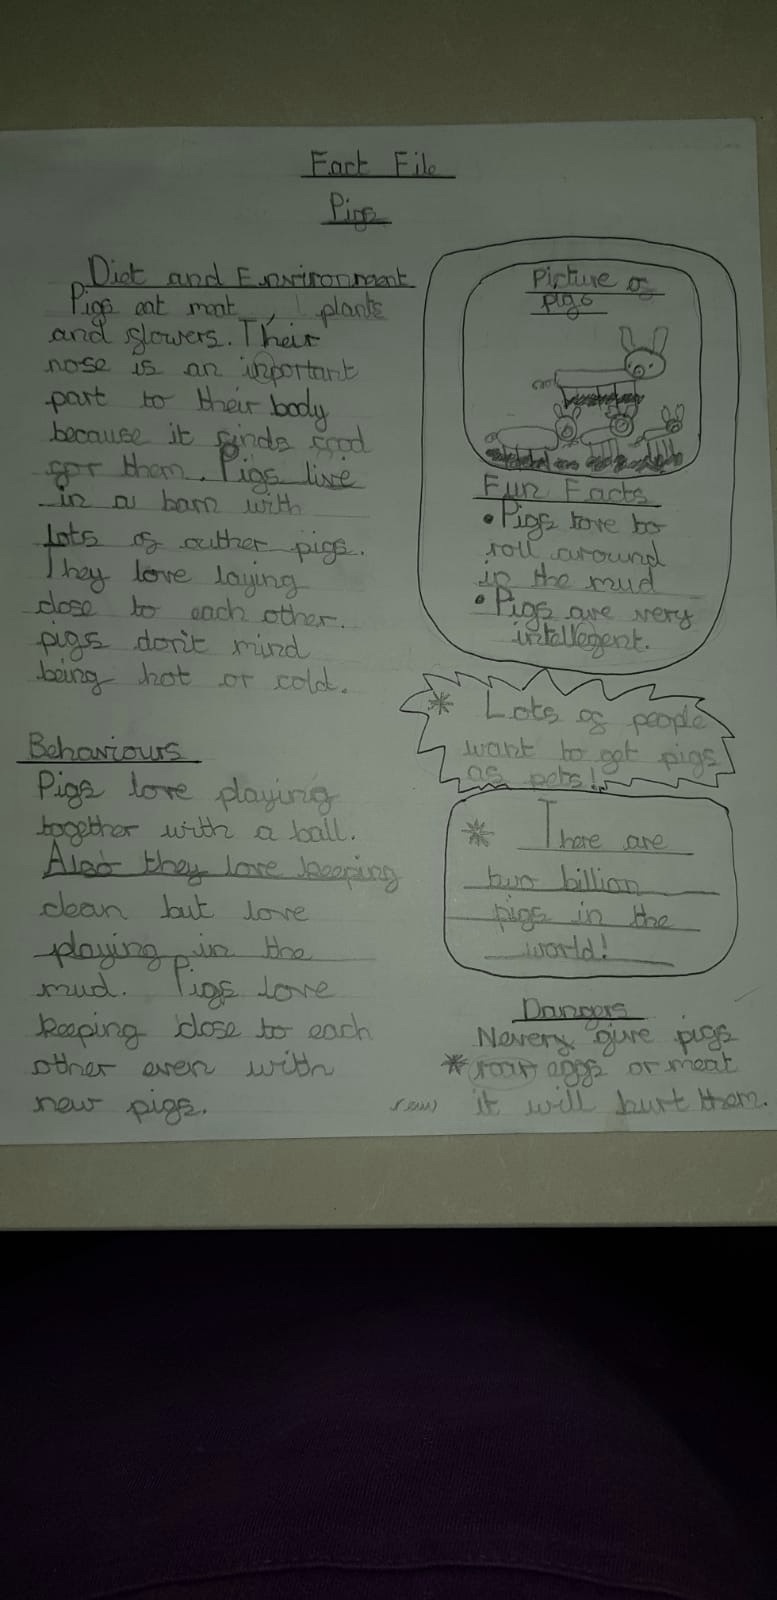 Fact File
Pigs
Diet and Environment
Pigs eat meat, plants
and flowers. Their
nose is an inportant
part to their body
because it finds food
for them. Pigs live
in a barn with
lots of outher pigs.
They love laying
close to each other.
pigs don't mind
being hot or cold.
Behaviours
Pigs love playing
together with a ball.
Also they love keeping
clean but love
playing in the
mud. Pigs love
keeping close to each
other even with
new pigs.
Picture of
pigs
Fun Facts
• Pigs love to
roll around
in the mud
• Pigs are very
intellegent.
* Lots of people
want to get pigs
as pets!
* There are
two billion
pigs in the
world!
Dangers
Never give pigs
* roar eggs or meat
(raw) it will hurt them.